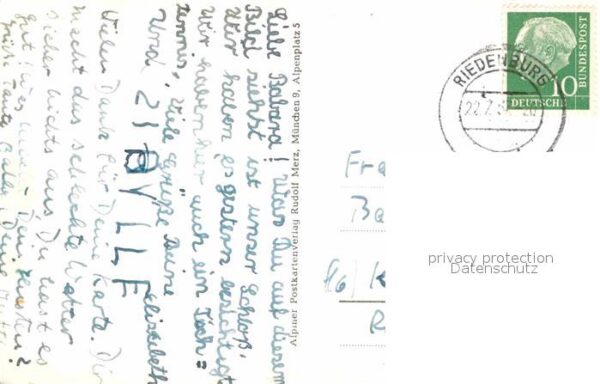 Liebe Babara! Was Du auf diesem
Bild siehst ist unser Schloß.
Wir haben es gestern besichtigt
Wir haben hier auch ein Tisch=
tennis. Viele Grüße Deine Elisabeth
und
SYBILLE
Vielen Dank für Deine Karte. Dir
macht das schlechte Wetter
sicher nichts aus. Du hast es
gut!
Tante
Deine
Alpiner Postkartenverlag Rudolf Merz, München 9, Alpenplatz 5
RIEDENBURG
22.7.
10
DEUTSCHE
BUNDESPOST
Fra
Ba
R
privacy protection
Datenschutz